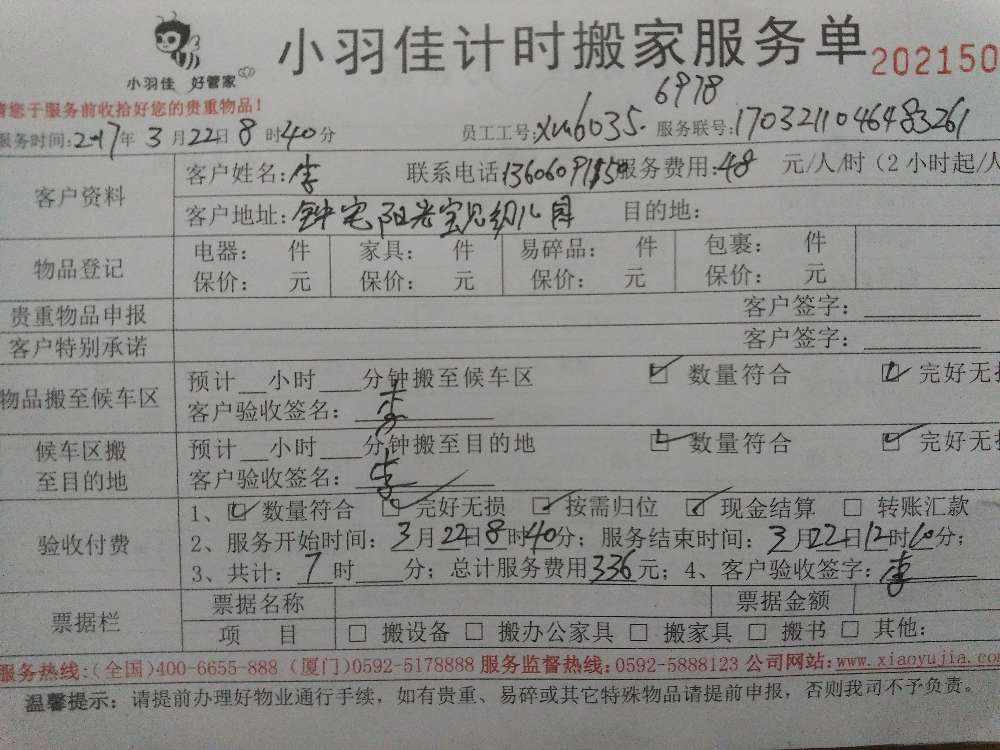 小羽佳计时搬家服务单
小羽佳 好管家
202150
请您于服务前收拾好您的贵重物品!
6978
服务时间:2017年3月22日8时40分 员工工号:xm6035. 服务联号:1703211046483261
客户资料
客户姓名:李 联系电话 服务费用:48 元/人/时(2小时起/人
客户地址:钟宅阳光宝贝幼儿园 目的地:
物品登记
电器: 件 家具: 件 易碎品: 件 包裹: 件
保价: 元 保价: 元 保价: 元 保价: 元
贵重物品申报 客户签字:
客户特别承诺 客户签字:
物品搬至候车区
预计__小时___分钟搬至候车区 ☑ 数量符合 ☑ 完好无损
客户验收签名:李
候车区搬至目的地
预计__小时___分钟搬至目的地 ☑ 数量符合 ☑ 完好无损
客户验收签名:李
验收付费
1、☑ 数量符合 ☑ 完好无损 ☑ 按需归位 ☑ 现金结算 □ 转账汇款
2、服务开始时间:3月22日8时40分;服务结束时间:3月22日12时10分;
3、共计:7时____分;总计服务费用336元;4、客户验收签字:李
票据栏
票据名称 票据金额
项 目 □ 搬设备 □ 搬办公家具 □ 搬家具 □ 搬书 □ 其他:
服务热线:(全国)400-6655-888 (厦门)0592-5178888 服务监督热线:0592-5888123 公司网站:www.xiaoyujia.com
温馨提示:请提前办理好物业通行手续,如有贵重、易碎或其它特殊物品请提前申报,否则我司不予负责。